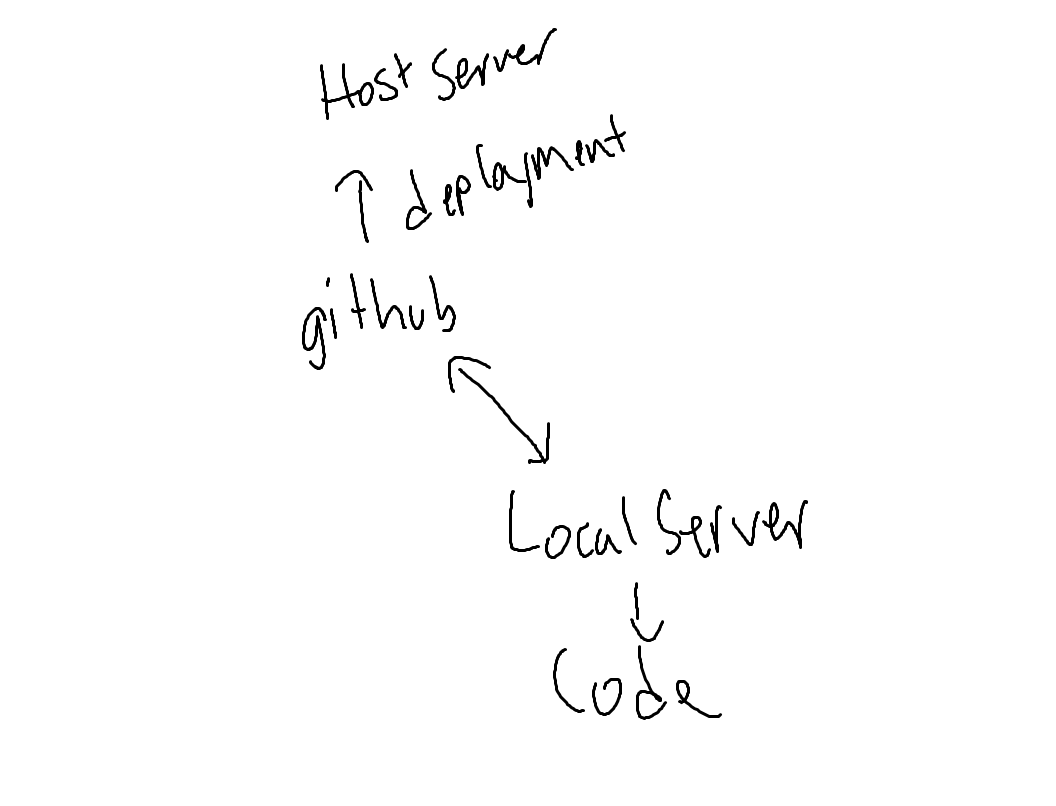 Host Server
deployment
github
Local Server
Code